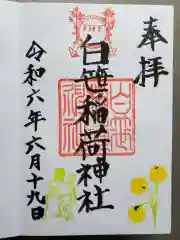 奉拝
白笹稲荷神社
令和六年六月十九日